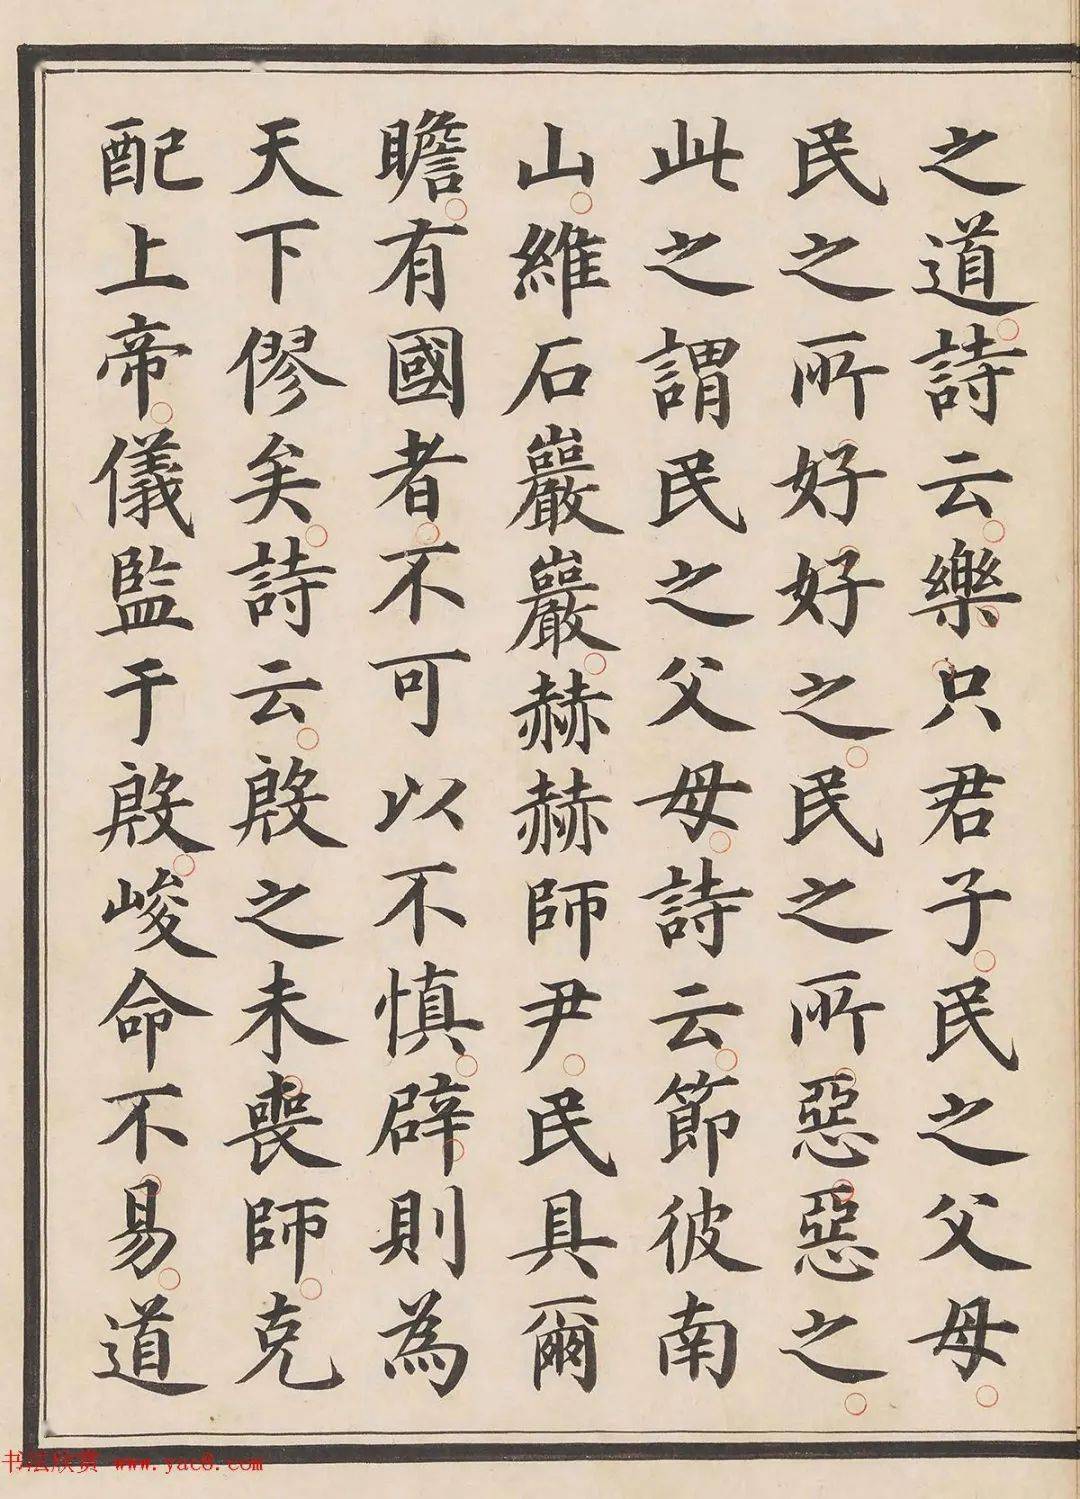 之道詩云樂只君子民之父母
民之所好好之民之所惡惡之
此之謂民之父母詩云節彼南
山維石巖巖赫赫師尹民具爾
瞻有國者不可以不慎辟則為
天下僇矣詩云殷之未喪師克
配上帝儀監于殷峻命不易道
书法欣赏 www.yac8.com